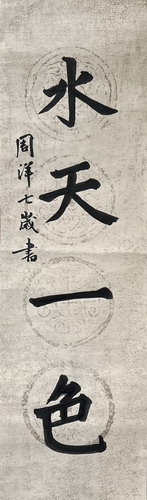 水天一色
周洋七歲書